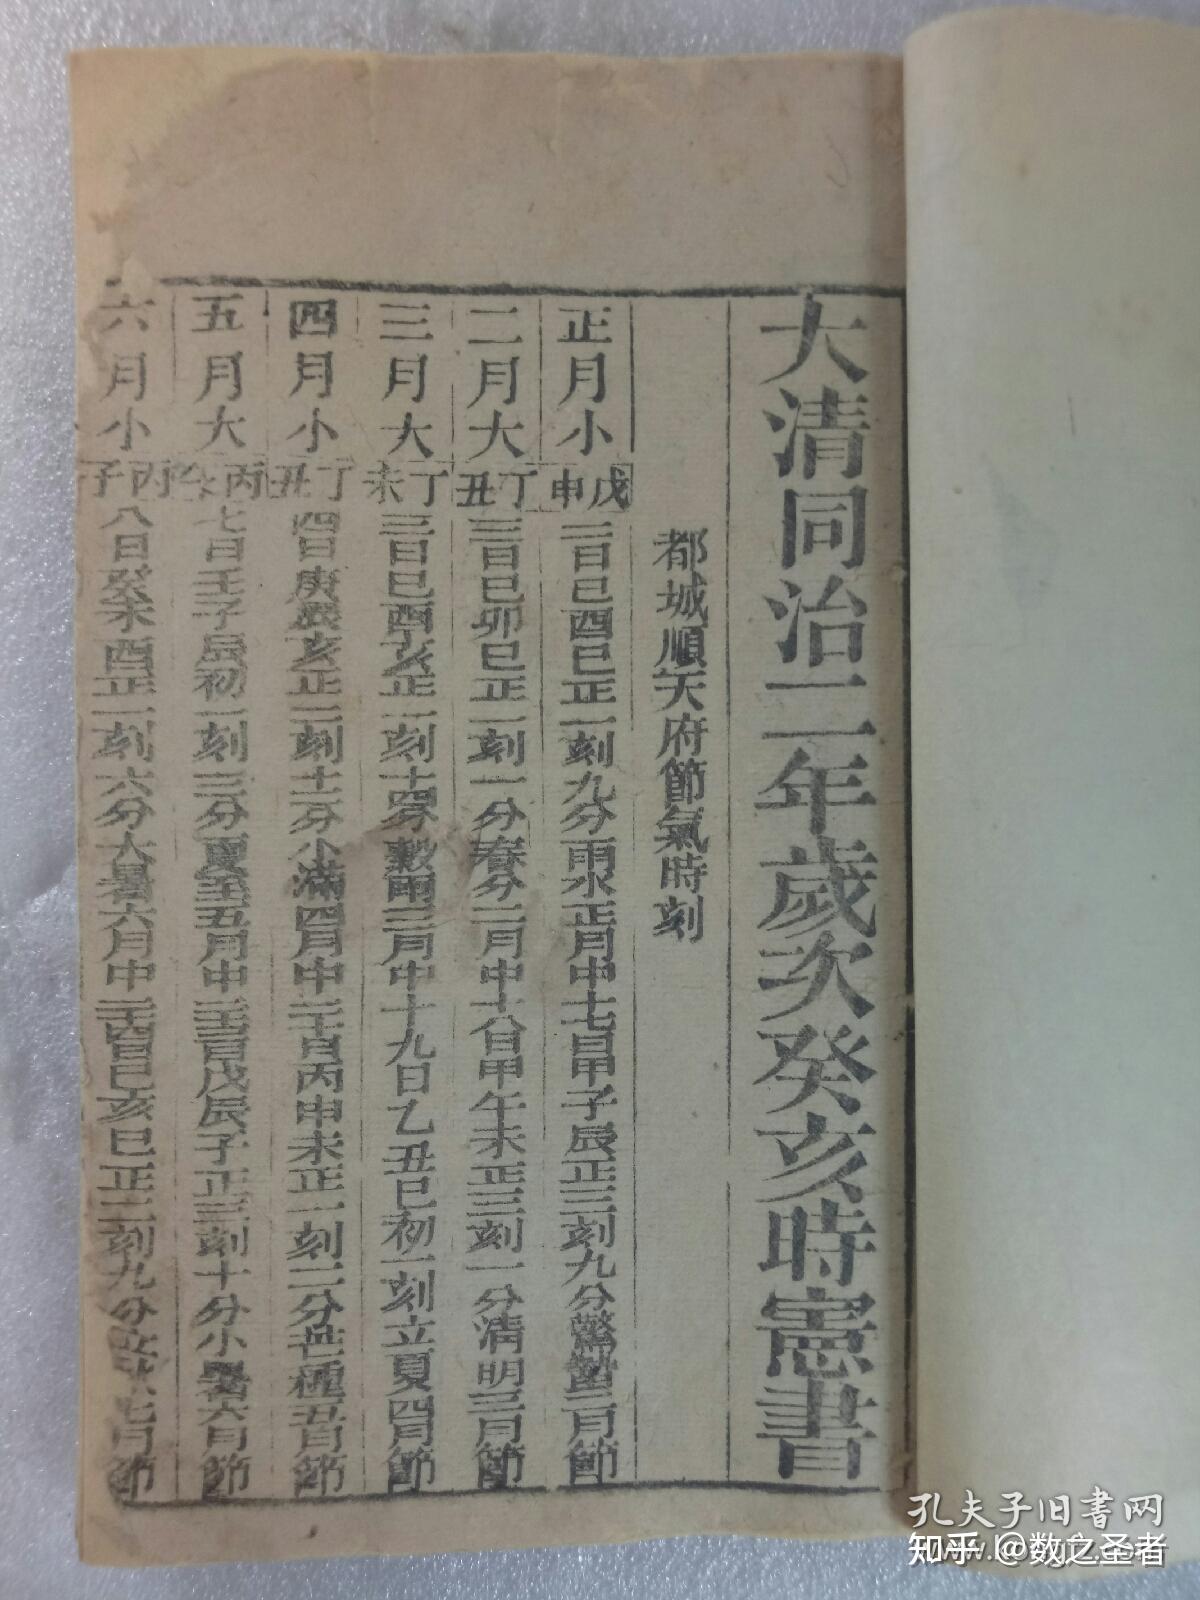 大清同治二年歲次癸亥時憲書
都城順天府節氣時刻
正月小 戊申 二日己酉巳正一刻九分雨水正月中十七日甲子辰正三刻九分驚蟄二月節
二月大 丁丑 三日己卯巳正一刻一分春分二月中十八日甲午未正三刻一分清明三月節
三月大 丁未 三日己酉亥正一刻十四分穀雨三月中十九日乙丑巳初一刻立夏四月節
四月小 丁丑 四日庚辰亥正二刻十二分小滿四月中二十日丙申未正一刻二分芒種五月節
五月大 丙午 七日壬子辰初一刻三分夏至五月中二十三日戊辰子正三刻十分小暑六月節
六月小 丙子 八日癸未酉正一刻六分大暑六月中二十四日己亥巳正二刻九分立秋七月節
孔夫子旧书网
知乎 @数之圣者